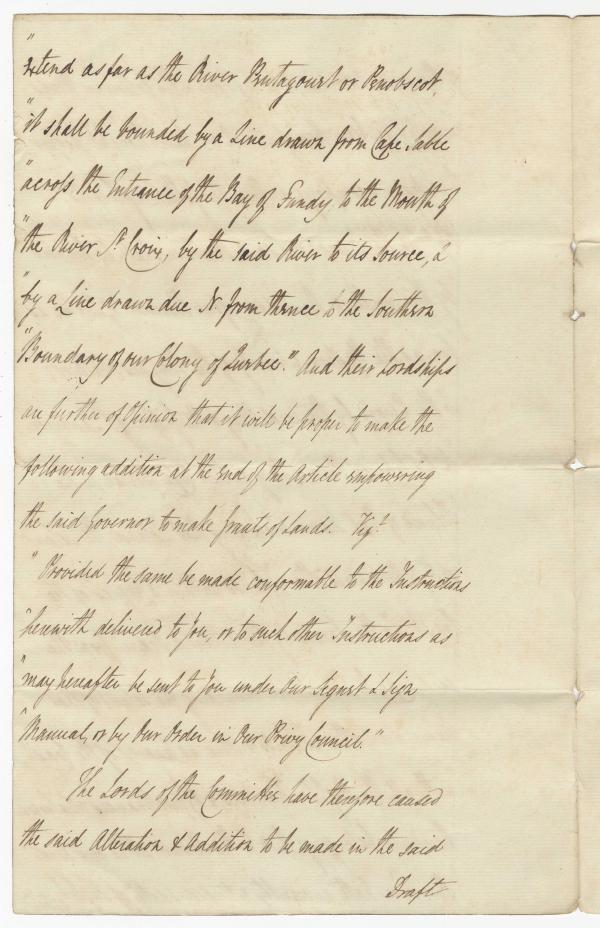 "
extend as far as the River Pentagouet or Penobscot,
"it shall be bounded by a Line drawn from Cape Sable
"across the Entrance of the Bay of Fundy to the Mouth of
"the River St Croix, by the said River to its Source, &
"by a Line drawn due N. from thence to the Southern
"Boundary of our Colony of Quebec." And their Lordships
are further of Opinion that it will be proper to make the
following addition at the end of the Article empowering
the said Governor to make Grants of Lands. Vizt
"Provided the same be made conformable to the Instructions
"herewith delivered to You, or to such other Instructions as
"may hereafter be sent to You under Our Signet & Sign
"Manual, or by Our Order in Our Privy Council."
The Lords of the Committee have therefore caused
the said Alteration & Addition to be made in the said
Draft